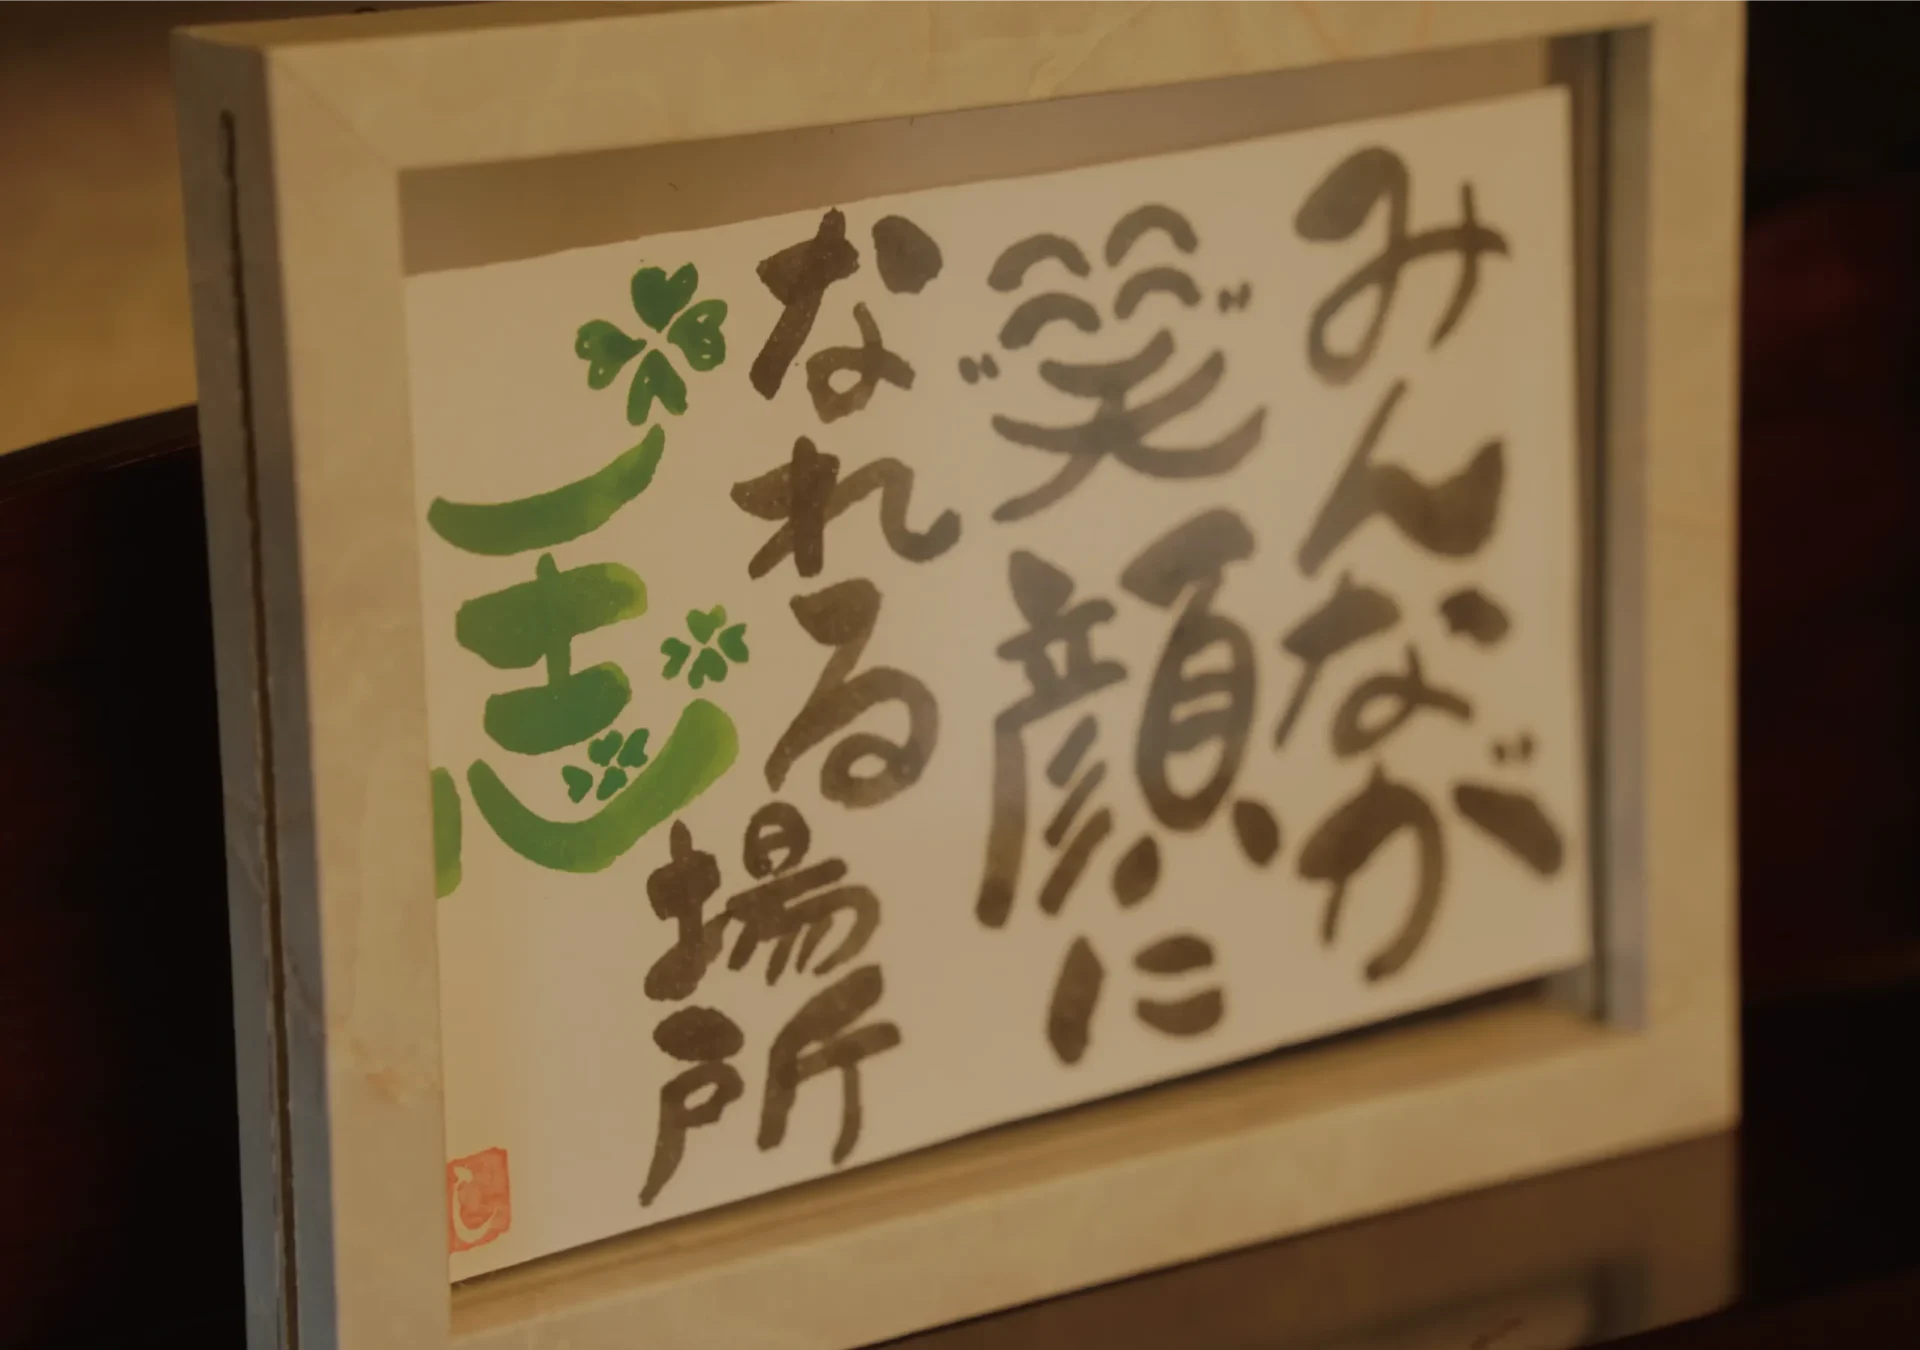 みんなが
笑顔に
なれる場所
し